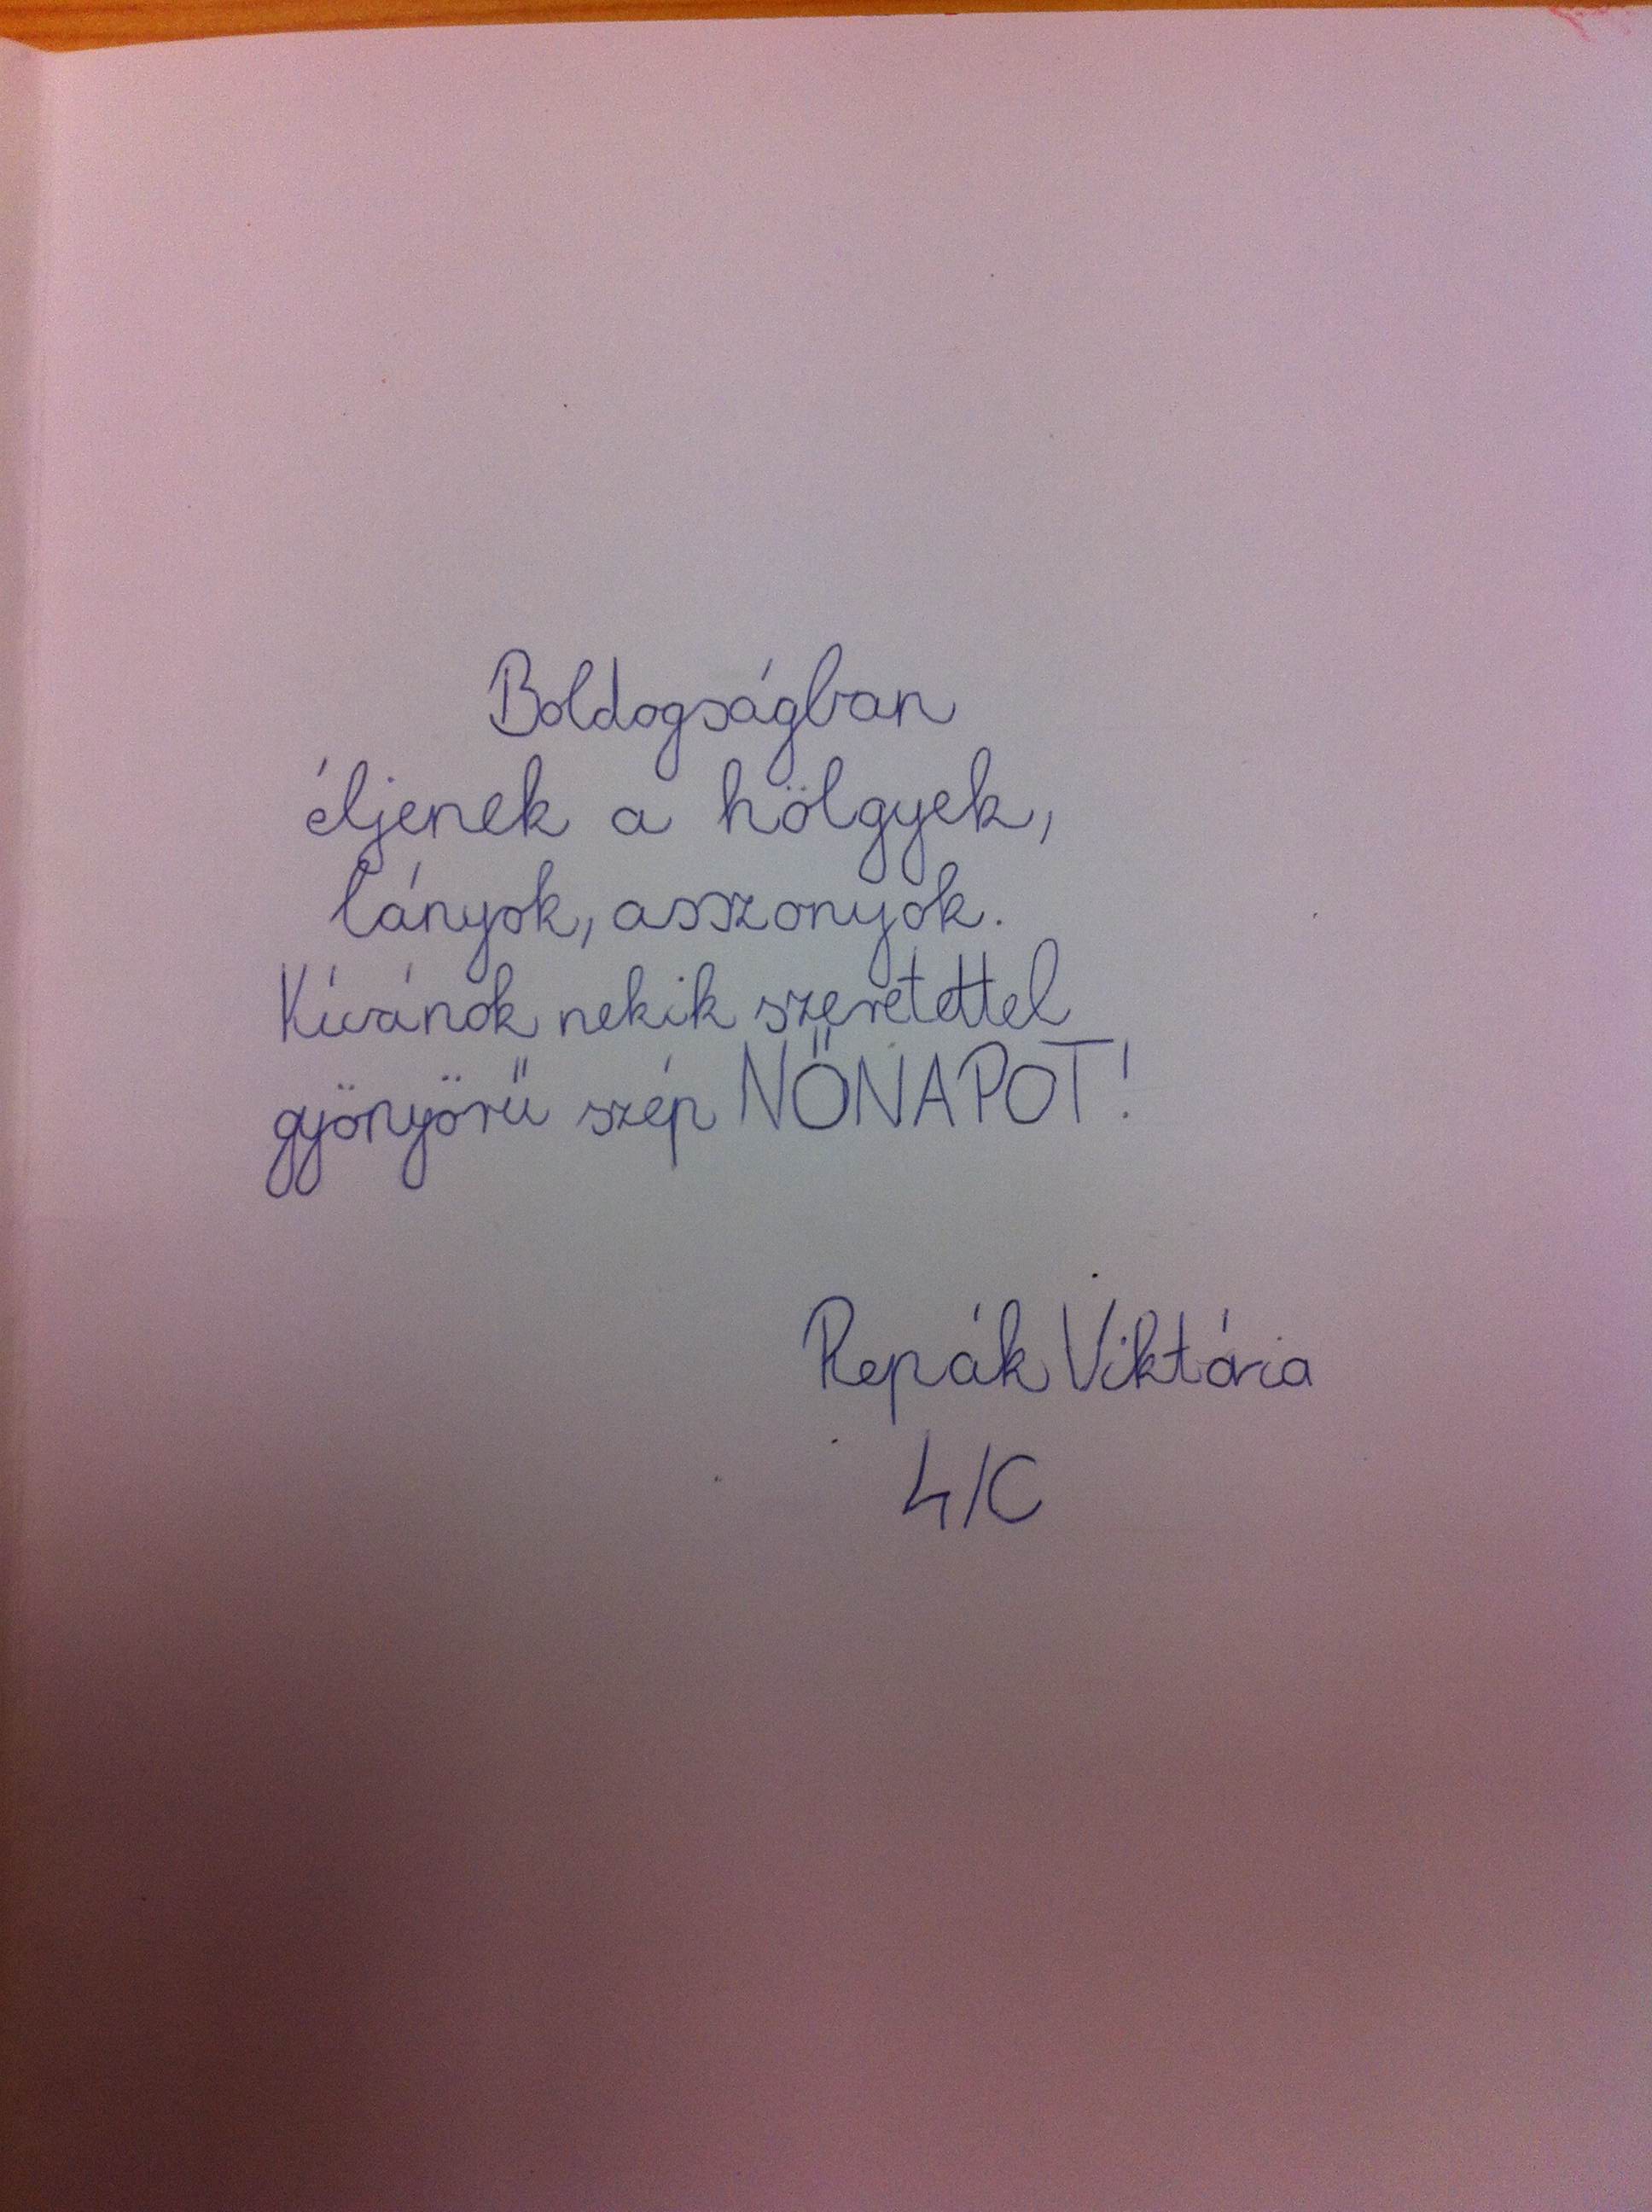 Boldogságban
éljenek a hölgyek,
lányok, asszonyok.
Kívánok nekik szeretettel
gyönyörű szép NŐNAPOT!
Repák Viktória
4/C